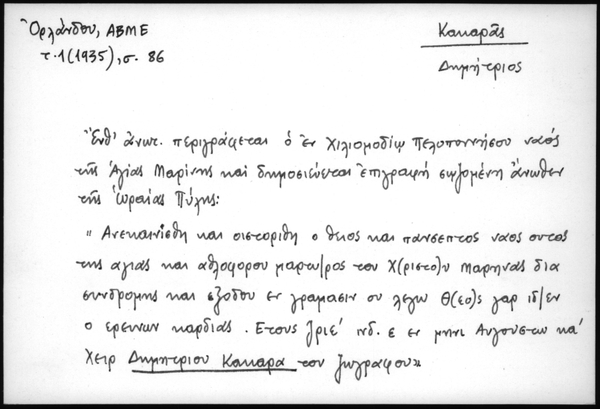 Ὀρλάνδου, ΑΒΜΕ
τ. 1 (1935), σ. 86
Κακαρᾶς
Δημήτριος
Ἔνθ' ἄνωτ. περιγράφεται ὁ ἐν Χιλιομοδίῳ Πελοποννήσου ναός
τῆς Ἁγίας Μαρίνης καί δημοσιεύεται ἐπιγραφή σῳζομένη ἄνωθεν
τῆς Ὡραίας Πύλης:
"Ανεκαινισθη και οιστοριθη ο θειος και πανσεπτος ναος ουτος
της αγιας και αθλοφορου μαρτυ/ρος του Χ(ριστο)υ Μαρηνας δια
συνδρομης και εξοδου εν γραμασιν ου λεγω Θ(εο)ς γαρ ιδ/εν
ο ερευνων καρδιας. Ετους ζριε' ινδ. ε εν μηνι Αυγουστω κα'
χειρ Δημητριου Κακαρα του ζωγραφου»